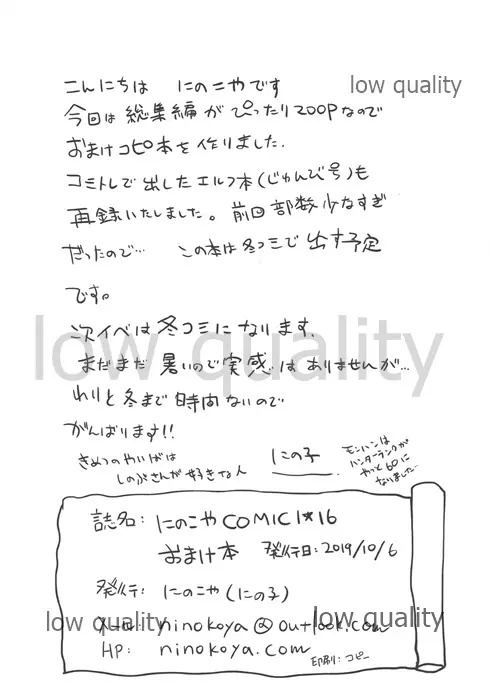 こんにちは にのこやです
low quality
今回は総集編がぴったり200Pなので
おまけコピー本を作りました.
コミトレで出したエルフ本(じゅんび号)も
再録いたしました。前回部数少なすぎ
だったので… この本は冬コミで出す予定
です。
low quality
次イベは冬コミになります.
まだまだ暑いので実感はありませんが…
わりと冬まで時間ないので
がんばります!!
きめつのやいばは
しのぶさんが好きな人
にの子
モンハンは
ハンターランクが
やっと60に
なりました
誌名: にのこやCOMIC1★16
おまけ本 発行日:2019/10/6
発行: にのこや(にの子)
low quality
low quality
メール: ninokoya@outlook.com
HP: ninokoya.com
印刷:コピー